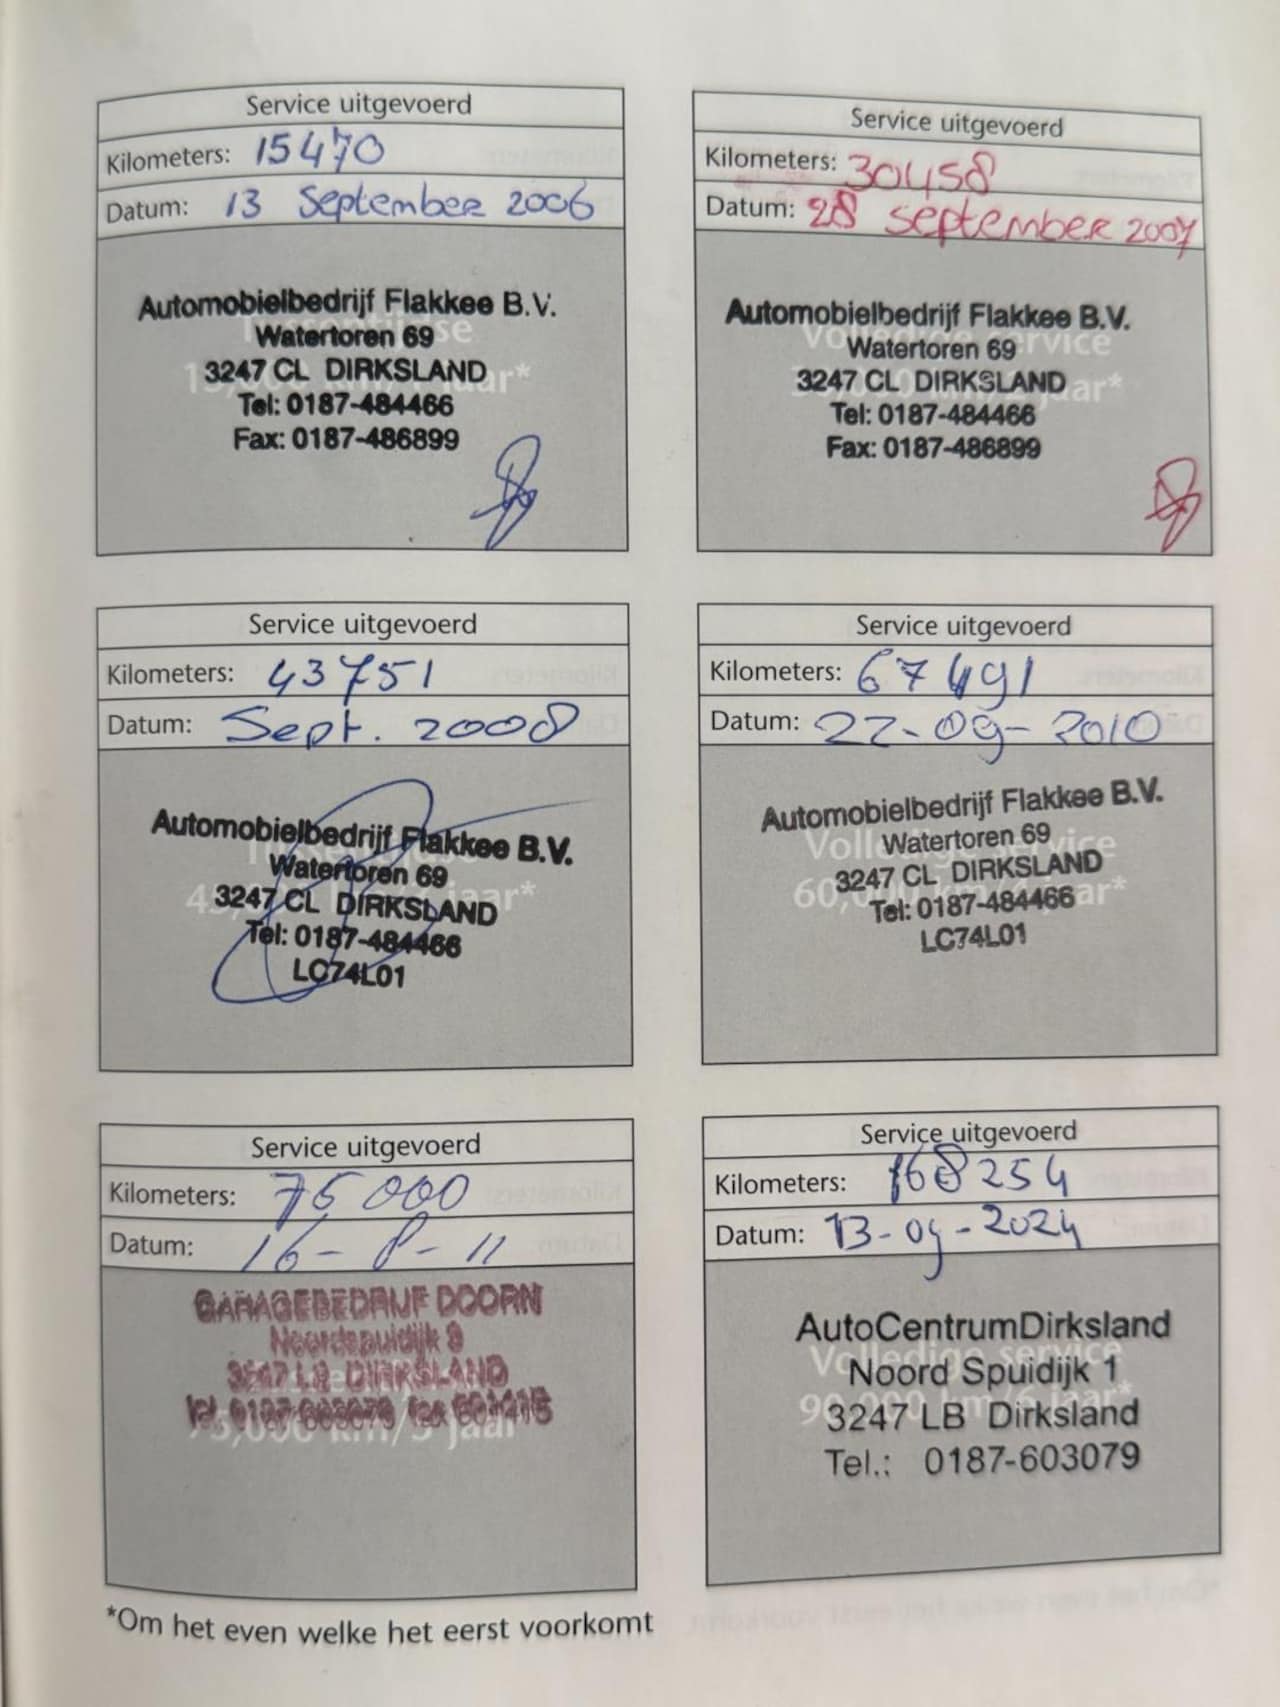 Service uitgevoerd
Kilometers: 15470
Datum: 13 September 2006
Automobielbedrijf Flakkee B.V.
Watertoren 69
3247 CL DIRKSLAND
Tel: 0187-484466
Fax: 0187-486899
Service uitgevoerd
Kilometers: 30458
Datum: 28 september 2007
Automobielbedrijf Flakkee B.V.
Volledige service
Watertoren 69
3247 CL DIRKSLAND
Tel: 0187-484466
Fax: 0187-486899
Service uitgevoerd
Kilometers: 43751
Datum: Sept. 2008
Automobielbedrijf Flakkee B.V.
Watertoren 69
3247 CL DIRKSLAND
Tel: 0187-484466
LC74L01
Service uitgevoerd
Kilometers: 67491
Datum: 22-09-2010
Automobielbedrijf Flakkee B.V.
Watertoren 69
Volledige service
3247 CL DIRKSLAND
60,000 km/4 jaar*
Tel: 0187-484466
LC74L01
Service uitgevoerd
Kilometers: 76 000
Datum: 16-8-11
GARAGEBEDRIJF DOORN
Noordspuidijk
3247 LB DIRKSLAND
tel. 0187-603079 fax
75,000 km/5 jaar*
Service uitgevoerd
Kilometers: 168254
Datum: 13-09-2024
AutoCentrumDirksland
Volledige service
Noord Spuidijk 1
90,000 km/6 jaar*
3247 LB Dirksland
Tel.: 0187-603079
*Om het even welke het eerst voorkomt